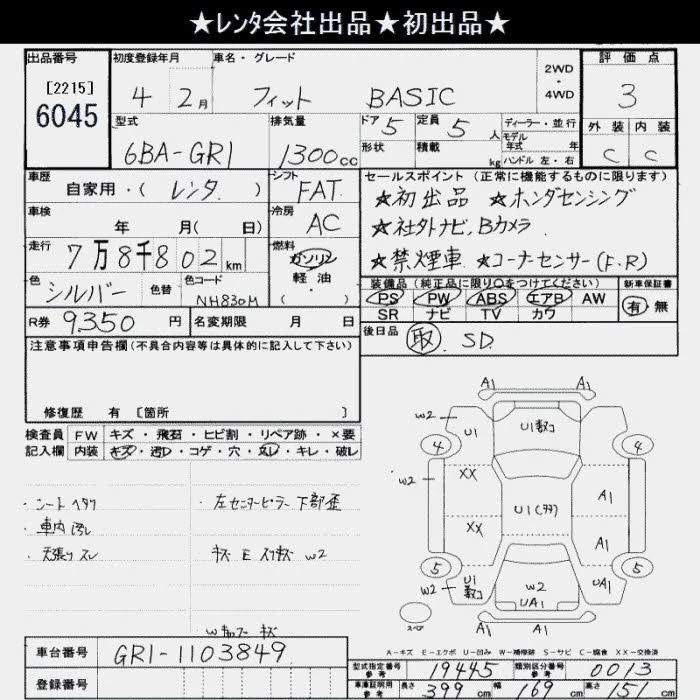 ★レンタ会社出品★初出品★
出品番号 初度登録年月 車名・グレード 2WD・4WD 評価点
[2215]
6045
4年 2月 フィット BASIC 3
型式 排気量 ドア 5 定員 5人 ディーラー・並行 外装 内装
モデル年式 年
6BA-GR1 1300cc 形状 積載 kg ハンドル 左・右 C C
車歴 自家用・(レンタ) シフト FAT セールスポイント (正常に機能するものに限ります)
★初出品 ★ホンダセンシング
車検 年 月(日) 冷房 AC
★社外ナビ,Bカメラ
走行 7万8千802km 燃料 ガソリン 軽油・
★禁煙車 ★コーナーセンサー(F,R)
色 シルバー 色替 色コード NH830M
装備品 (純正品に限り○をつけてください) 新車保証書
PS PW ABS エアB AW 有・無
SR ナビ TV カワ
R券 9350円 名変期限 月 日
後日品 取 . SD.
注意事項申告欄 (不具合内容等は具体的に記入して下さい)
修復歴 有 [箇所 ]
検査員 FW キズ・飛石・ヒビ割・リペア跡・×要
記入欄 内装 キズ・汚レ・コゲ・穴・スレ・キレ・破レ
・シートヘタリ
・車内汚レ
・天張りスレ
・左センターピラー下部歪
キズ E スリキズ W2
A1 A1
W2 U1 U1数コ
4 4
W2 XX U1(多数) A1
XX A1
5 5
U1数コ W2 UA1 UA1
A1 A1
スペア
A-キズ E-エクボ U-凹み W-補修跡 S-サビ C-腐食 XX-交換済
車台番号 GR1-1103849
登録番号
型式指定番号 参考 19445 類別区分番号 参考 0013
車庫証明用 参考 長さ 399cm 幅 169cm 高さ 151cm